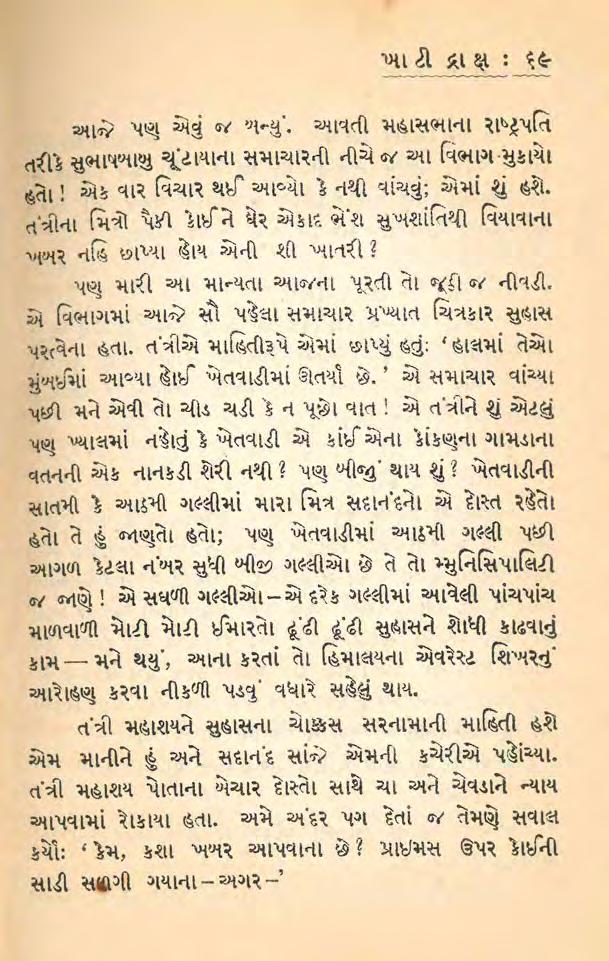 ખાટી દ્રાક્ષ : ૬૯
આજે પણ એવું જ બન્યું. આવતી મહાસભાના રાષ્ટ્રપતિ
તરીકે સુભાષબાબુ ચૂંટાયાના સમાચારની નીચે જ આ વિભાગ મુકાયો
હતો! એક વાર વિચાર થઈ આવ્યો કે નથી વાંચવું; એમાં શું હશે.
તંત્રીના મિત્રો પૈકી કોઈને ઘેર એકાદ ભેંશ સુખશાંતિથી વિયાવાના
ખબર નહિ છાપ્યા હોય એની શી ખાતરી?
પણ મારી આ માન્યતા આજના પૂરતી તો જૂઠી જ નીવડી.
એ વિભાગમાં આજે સૌ પહેલા સમાચાર પ્રખ્યાત ચિત્રકાર સુહાસ
પરત્વેના હતા. તંત્રીએ માહિતીરૂપે એમાં છાપ્યું હતું: ‘હાલમાં તેઓ
મુંબઈમાં આવ્યા હોઈ ખેતવાડીમાં ઊતર્યા છે.’ એ સમાચાર વાંચ્યા
પછી મને એવી તો ચીડ ચડી કે ન પૂછો વાત! એ તંત્રીને શું એટલું
પણ ખ્યાલમાં નહોતું કે ખેતવાડી એ કાંઈ એના કોંકણના ગામડાના
વતનની એક નાનકડી શેરી નથી? પણ બીજું થાય શું? ખેતવાડીની
સાતમી કે આઠમી ગલ્લીમાં મારા મિત્ર સદાનંદનો એ દોસ્ત રહેતો
હતો તે હું જાણતો હતો; પણ ખેતવાડીમાં આઠમી ગલ્લી પછી
આગળ કેટલા નંબર સુધી બીજી ગલ્લીઓ છે તે તો મ્યુનિસિપાલિટી
જ જાણે! એ સઘળી ગલ્લીઓ – એ દરેક ગલ્લીમાં આવેલી પાંચપાંચ
માળવાળી મોટી મોટી ઈમારતો ઢૂંઢી ઢૂંઢી સુહાસને શોધી કાઢવાનું
કામ — મને થયું, આના કરતાં તો હિમાલયના એવરેસ્ટ શિખરનું
આરોહણ કરવા નીકળી પડવું વધારે સહેલું થાય.
તંત્રી મહાશયને સુહાસના ચોક્કસ સરનામાની માહિતી હશે
એમ માનીને હું અને સદાનંદ સાંજે એમની કચેરીએ પહોંચ્યા.
તંત્રી મહાશય પોતાના બેચાર દોસ્તો સાથે ચા અને ચેવડાને ન્યાય
આપવામાં રોકાયા હતા. અમે અંદર પગ દેતાં જ તેમણે સવાલ
કર્યો: ‘કેમ, કશા ખબર આપવાના છે? પ્રાઈમસ ઉપર કોઈની
સાડી સળગી ગયાના – અગર –’